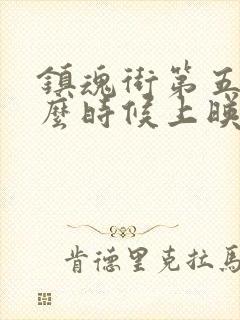 鎮魂街第五
麼時候上映
肯德里克拉馬